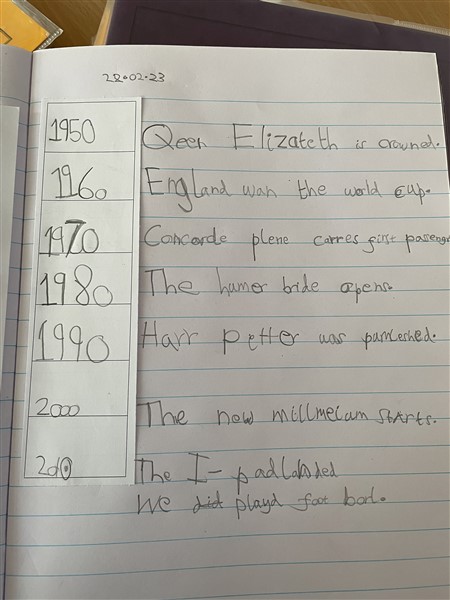 22.02.23
1950 Qeen Elizateth is crowned.
1960 England wan the world cup.
1970 Concorde plene carres first passeng
1980 The humer bride opens.
1990 Harr petter was pamleshed.
2000 The new millmelam starts.
2010 The I-pad landed
We did playd foot borl.